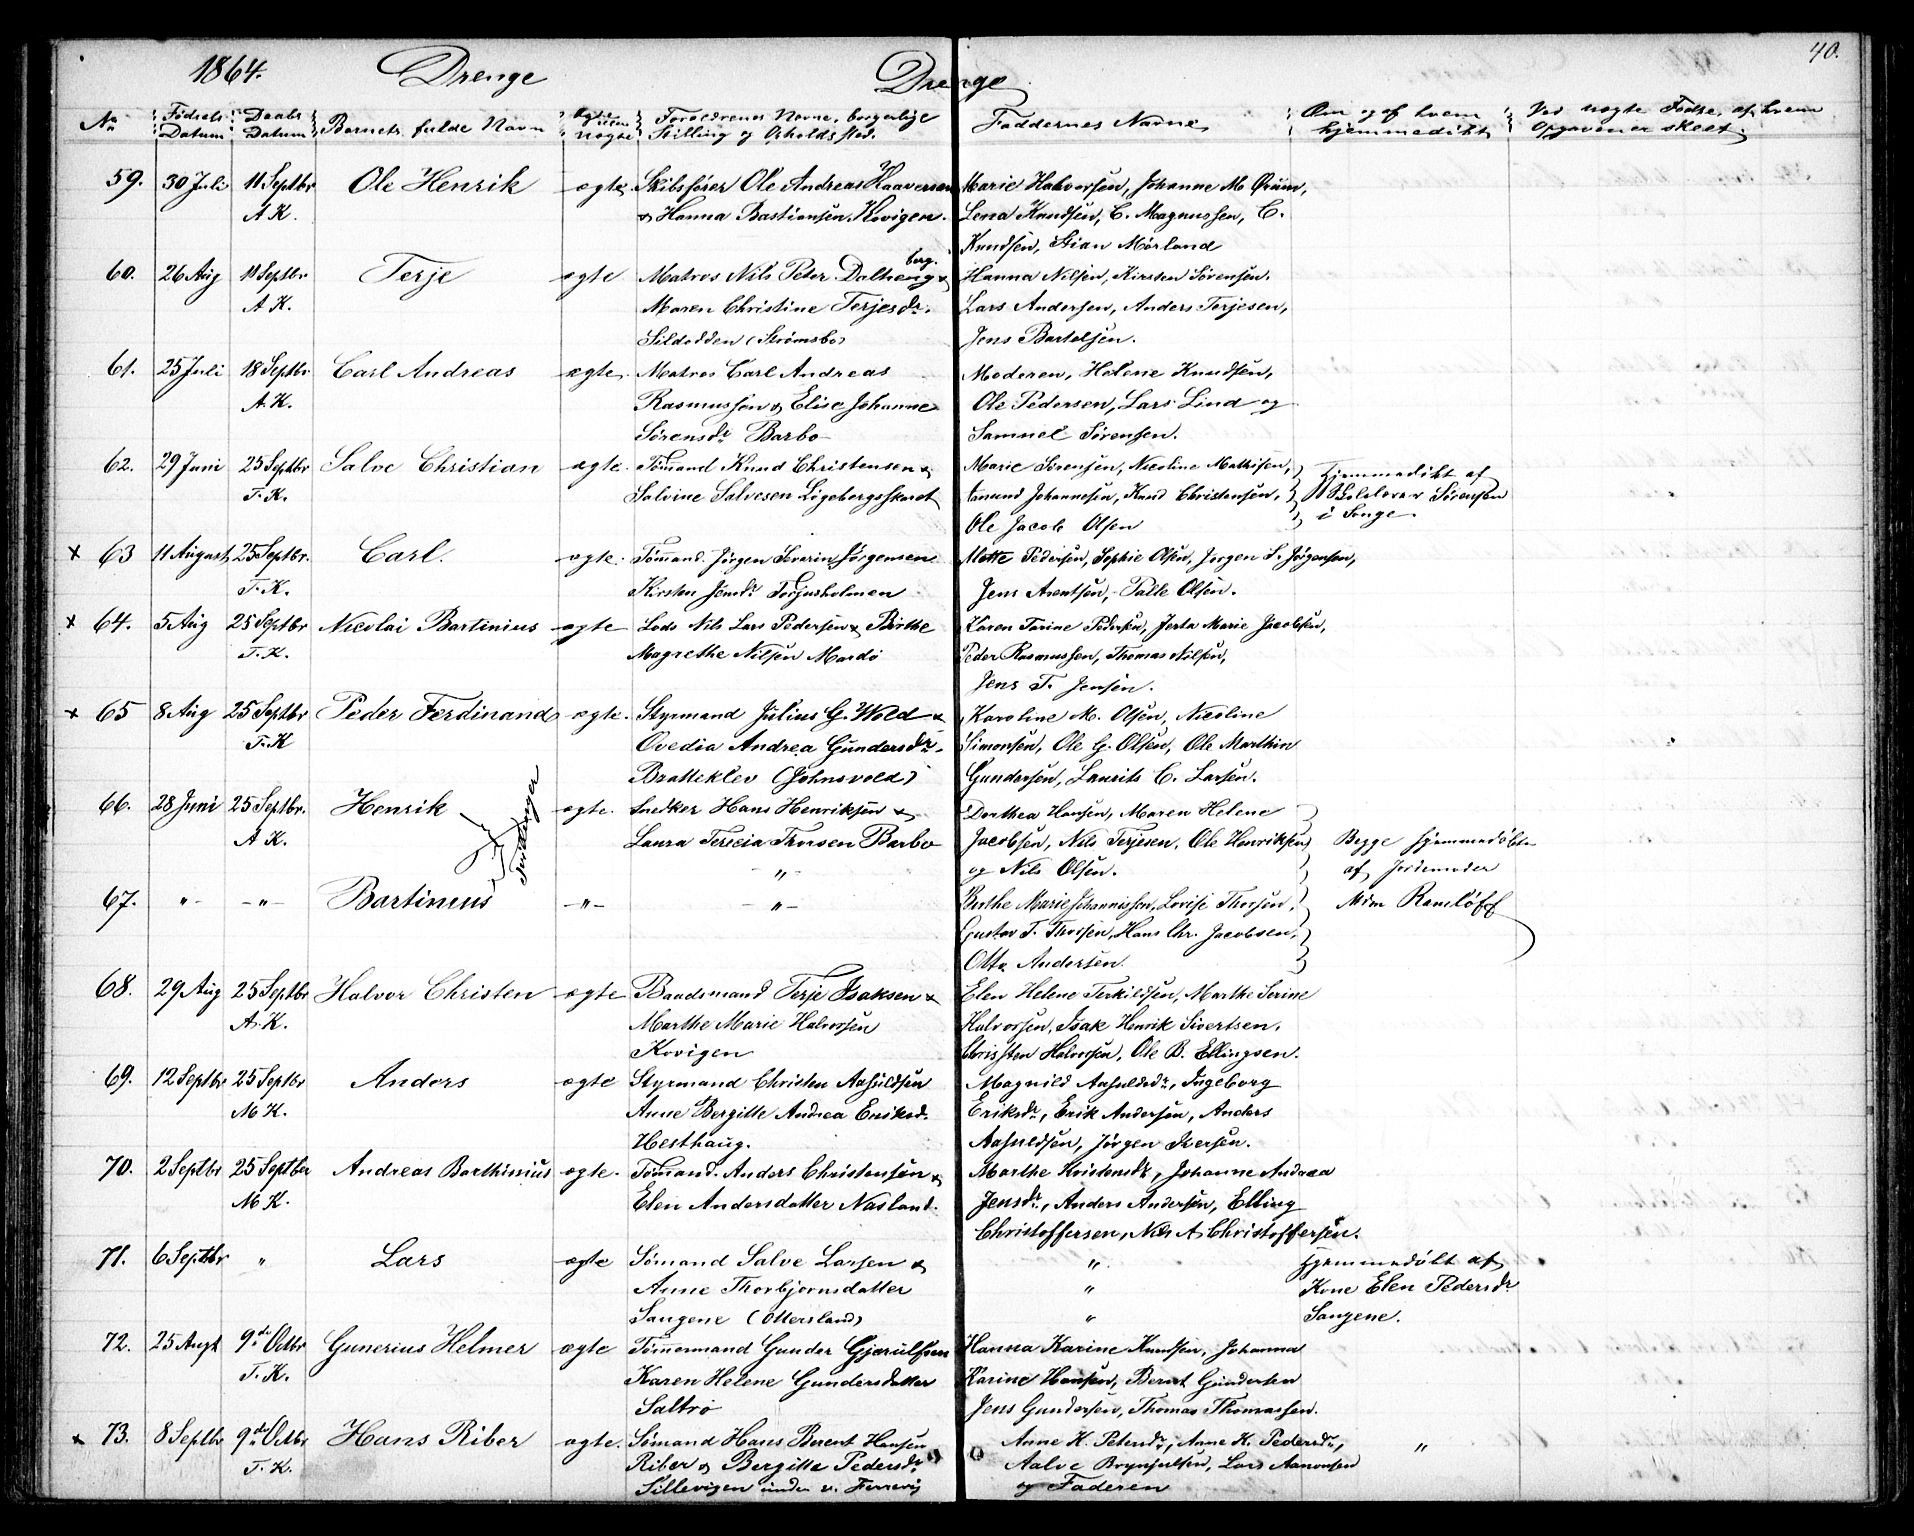 1864. Drenge Drenge 40.
No Fødsels Datum Daabs Datum Barnets fulde Navn Ægte eller uægte Forældrenes Navne, borgerlige Stilling og Opholdssted. Faddernes Navne Om og af hvem hjemmedøbt Ved uægte Fødse, af hvem Opgaven er skeet.
59. 30 Juli 11 Septbr Ole Henrik ægte Skibsfører Ole Andreas Haaversen Marie Halvorsen, Johanne M. Ørum,
A K. & Hanna Bastiansen Kovigen. Lena Knudsen, C. Magnussen, C.
Knudsen, Stian Mørland
60. 26 Aug 18 Septbr Terje ægte Matros Nils Peter Dalheng berg. & Hanna Nilsen, Kirsten Sørensen.
A K. Maren Christine Terjesdr. Lars Andersen, Anders Terjesen,
Sildodden (Strømsbo) Jens Bartelsen.
61. 25 Juli 18 Septbr Carl Andreas ægte Matros Carl Andreas Moderen, Helene Knudsen,
A. K. Rasmussen & Elise Johanne Ole Pedersen, Lars Lind og
Sørensdr Barbo Samuel Sørensen.
62. 29 Juni 25 Septbr Salve Christian ægte Tømmand Knud Christensen & Marie Sørensen, Nicoline Mathisen, Hjemmedøbt af
T. K. Salvine Salvesen Løgebergsskaret Amund Johannesen, Knud Christensen, Skolelærer Sørensen
Ole Jacob Olsen i Songe.
x 63 11 August 25 Septbr. Carl. ægte. Tømmand. Jørgen Severin Jørgensen Mette Pedersen, Sophie Olsen, Jørgen S. Jørgensen,
T. K. Kirsten Jensdr Torjusholmen Jens Arentsen, Palle Olsen.
x 64. 5 Aug 25 Septbr Nicolai Bartinius ægte Lods Nils Lars Pedersen & Birthe Karen Tarine Pedersen, Jerta Marie Jacobsen,
T. K. Magrethe Nilsen Mardø Peder Rasmussen, Thomas Nilsen,
Jens T. Jensen.
x 65 8 Aug 25 Septbr Peder Ferdinand ægte. Styrmand Julius G. Wold & Karoline M. Olsen, Nicoline
T. K Ovedia Andrea Gundersdr. Simonsen, Ole G. Olsen, Ole Marthin
Bratteklev (Johnsvold) Gundersen, Laurits C. Larsen.
66. 28 Juni 25 Septbr. Henrik Tvillinger ægte. Snedker Hans Henriksen & Dorthea Hansen, Maren Helene
A K. Laura Tericia Trusen Barbo Jacobsen, Nils Terjesen, Ole Henriksen Begge hjemmedøbte
" og Nils Olsen. af Jordemoder
67. " - " - Bartineus - " - - " - Berthe Marie Johannissen, Lovise Thorsen, Mdm Ramløff
Gustav T. Thorsen, Hans Chr. Jacobsen,
Otto Andersen.
68. 29 Aug 25 Septbr Halvor Christen ægte Baadsmand Terje Isaksen & Elen Helene Terkildsen, Marthe Serine
A. K. Marthe Marie Halvorsen Halvorsen, Isak Henrik Sivertsen,
Kovigen Christen Halvorsen, Ole B. Ellingsen.
69. 12 Septbr 25 Septbr Anders ægte Styrmand Christen Aasuldsen Magnild Aasuldsdr, Ingeborg
M K. Anne Bergitte Andrea Eriksd. Eriksdr, Erik Andersen, Anders
Hesthaug. Aasuldsen, Jørgen Iversen.
70. 2 Septbr 25 Septber Andreas Barthinius ægte. Tømmand. Anders Christensen & Marthe Kristensdr, Johanne Andrea
M K. Elen Andersdatter Næsland. Jensdr., Anders Andersen, Elling
Christoffersen, Nils A. Christoffersen.
71. 6 Septbr " Lars ægte Sømand Salve Larsen & " Hjemmedøbt af
Anne Thorbjornsdatter " Kone Elen Pedersdr
Saugene (Ottersland) " Saugene.
72. 25 Augt 9de Octbr Gunerius Helmer ægte Tømmermand Gunder Gjerulfsen Hanna Karine Knudsen, Johanna
T. K. Karen Helene Gundersdatter Karine Hansen, Bernt Gundersen
Saltrø Jens Gundersen, Thomas Thomassen.
x 73. 8 Septbr 9de Octbr Hans Riber ægte. Sømand Hans Berent Hansen Anne K. Petersdr, Anne K. Pedersdr, "
T. K. Riber & Bergitte Pedersdr Aalve Brynjulsen, Lars Aanonsen
Sillevigen under v. Ferrevig og Faderen